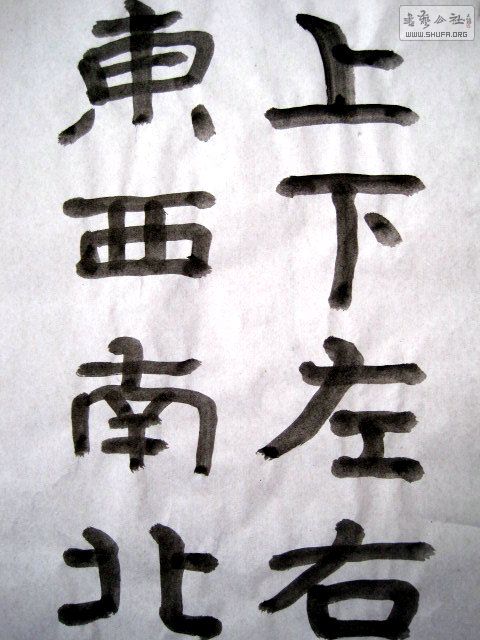 上下左右
東西南北
書藝公社
WWW.SHUFA.ORG